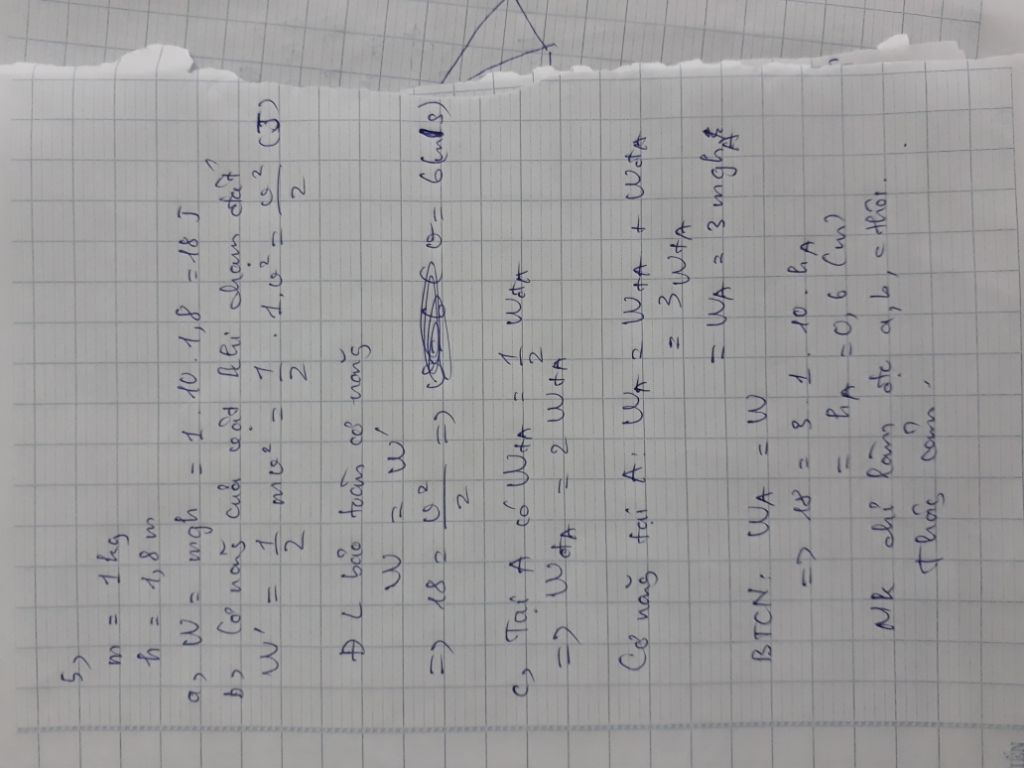 5,
m = 1 kg
h = 1,8 m
a, W = mgh = 1 . 10 . 1,8 = 18 J
b, Cơ năng của vật khi chạm đất
W' = 1/2 mv² = 1/2 . 1.v² = v²/2 (J)
ĐL bảo toàn cơ năng
W = W'
=> 18 = v²/2 => v = 6 (m/s)
c, Tại A có WđA = 1/2 WtA
=> WtA = 2 WđA
Cơ năng tại A: WA = WtA + WđA
= 3 WtA
= WA = 3 mghA
BTCN: WA = W
=> 18 = 3 . 1 . 10 . hA
= hA = 0,6 (m)
Mk chỉ làm đc a, b, c thôi.
thông cảm.